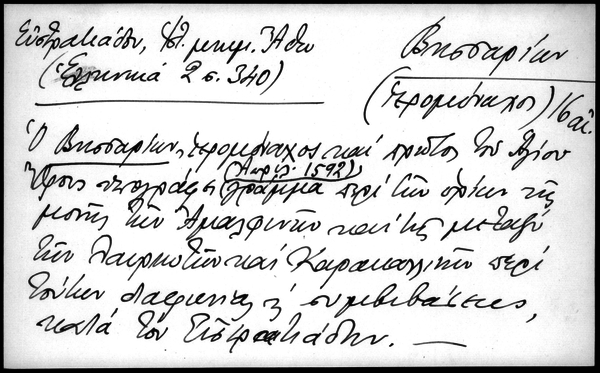 Εὐστρατιάδου, Ἁγ. μνημ. Ἄθω
(Ἑλληνικά 2 σ. 340)
Βησσαρίων
(ἱερομόναχος) 16 αἰ.
Ὁ Βησσαρίων, ἱερομόναχος καί πρῶτος τοῦ Ἁγίου
Ὄρους ὑπογράφει (Ἀπρίλ. 1592) γράμμα περί τῶν ὁρίων τῆς
μονῆς τῶν Ἀμαλφηνῶν καί τῆς μεταξύ
τῶν Λαυριωτῶν καί Καρακαλληνῶν περί
τούτων διαφωνίας ἤ συμβιβάσεως,
κατά τόν Εὐστρατιάδην. —